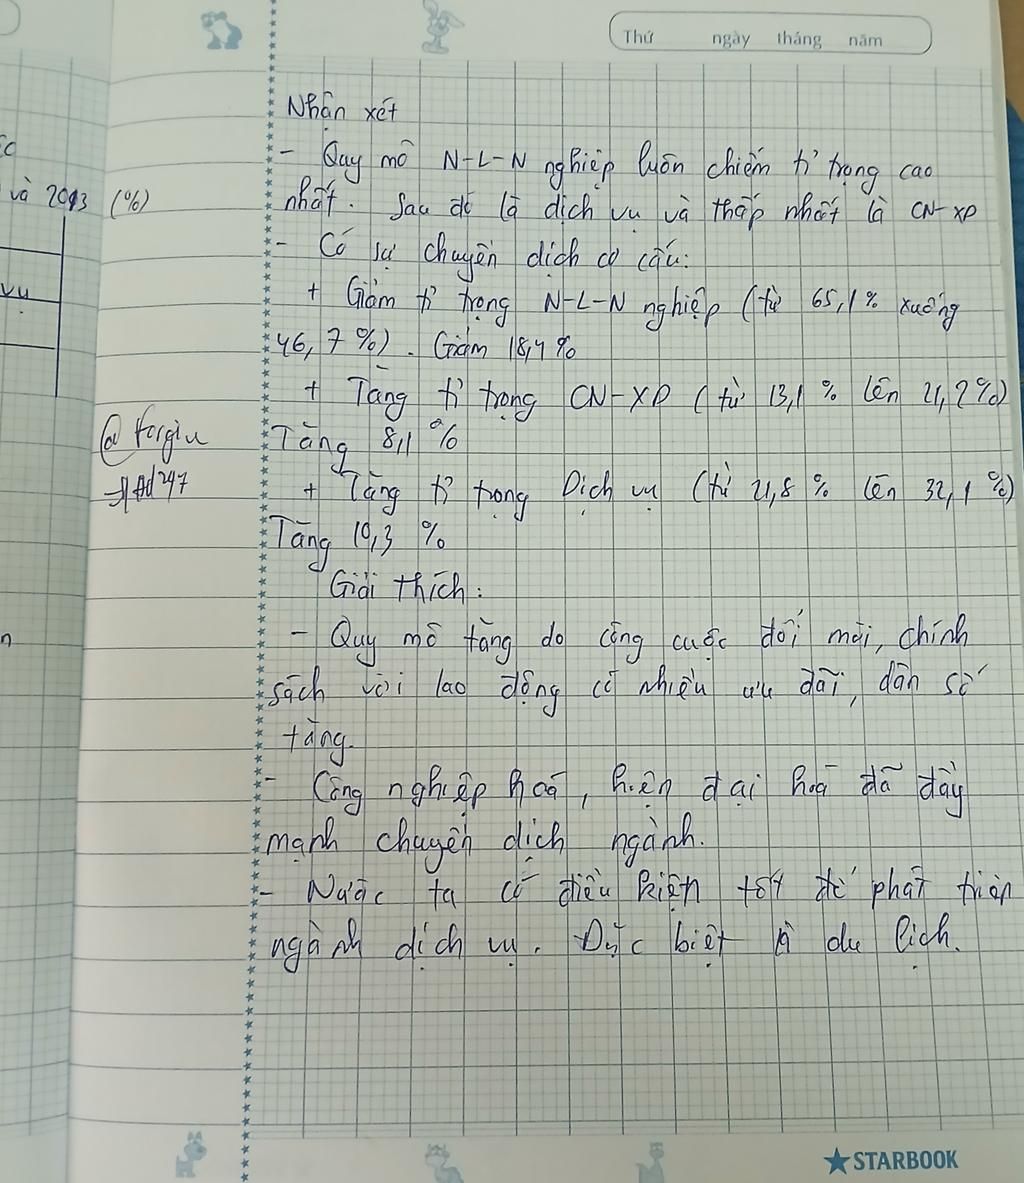 Thứ ngày tháng năm
Nhận xét
- Quy mô N-L-N nghiệp luôn chiếm tỉ trọng cao
nhất. Sau đó là dịch vụ và thấp nhất là CN-XD
- Có sự chuyển dịch cơ cấu:
+ Giảm tỉ trọng N-L-N nghiệp (từ 65,1% xuống
46,7%). Giảm 18,4%
+ Tăng tỉ trọng CN-XD (từ 13,1% lên 21,2%)
Tăng 8,1%
+ Tăng tỉ trọng Dịch vụ (từ 21,8% lên 32,1%)
Tăng 10,3%
Giải thích:
- Quy mô tăng do công cuộc đổi mới, chính
sách với lao động có nhiều ưu đãi, dân số
tăng.
- Công nghiệp hoá, hiện đại hoá đã đẩy
mạnh chuyển dịch ngành.
- Nước ta có điều kiện tốt để phát triển
ngành dịch vụ. Đặc biệt là du lịch.
và 2013 (%)
vụ
STARBOOK